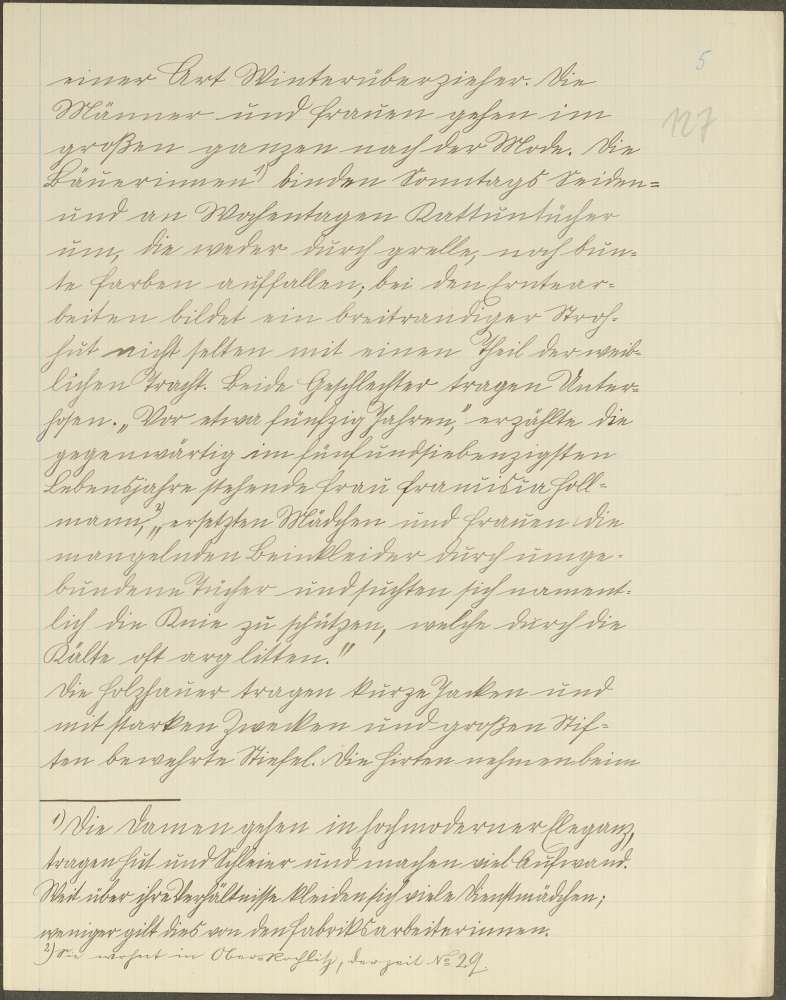 5
127
einer Art Winterüberzieher. Die
Männer und Frauen gehen im
großen ganzen nach der Mode. Die
Bäuerinnen¹⁾ binden Sonntags Seiden=
und an Wochentagen Kattuntücher
um, die weder durch grelle, noch bun-
te Farben auffallen; bei den Erntear-
beiten bildet ein breitrandiger Stroh-
hut nicht selten mit einen Theil der weib-
lichen Tracht. Beide Geschlechter tragen Unter-
hosen. „Vor etwa fünfzig Jahren," erzählte die
gegenwärtig im fünfundsiebenzigsten
Lebensjahre stehende Frau Franziska Holl-
mann,²⁾ „ersetzten Mädchen und Frauen die
mangelnden Beinkleider durch umge-
bundene Tücher und suchten sich nament-
lich die Knie zu schützen, welche durch die
Kälte oft arg litten."
Die Holzhauer tragen kurze Jacken und
mit starken Zwecken und großen Stif-
ten bewehrte Stiefel. Die Hirten nehmen beim
¹⁾ Die Damen gehen in hochmoderner Eleganz,
tragen Hut und Schleier und machen viel Aufwand.
Weit über ihre Verhältnisse kleiden sich viele Dienstmädchen;
weniger gilt dies von den Fabriksarbeiterinnen.
²⁾ Sie wohnt in Ober-Rochlitz, derzeit No 29.